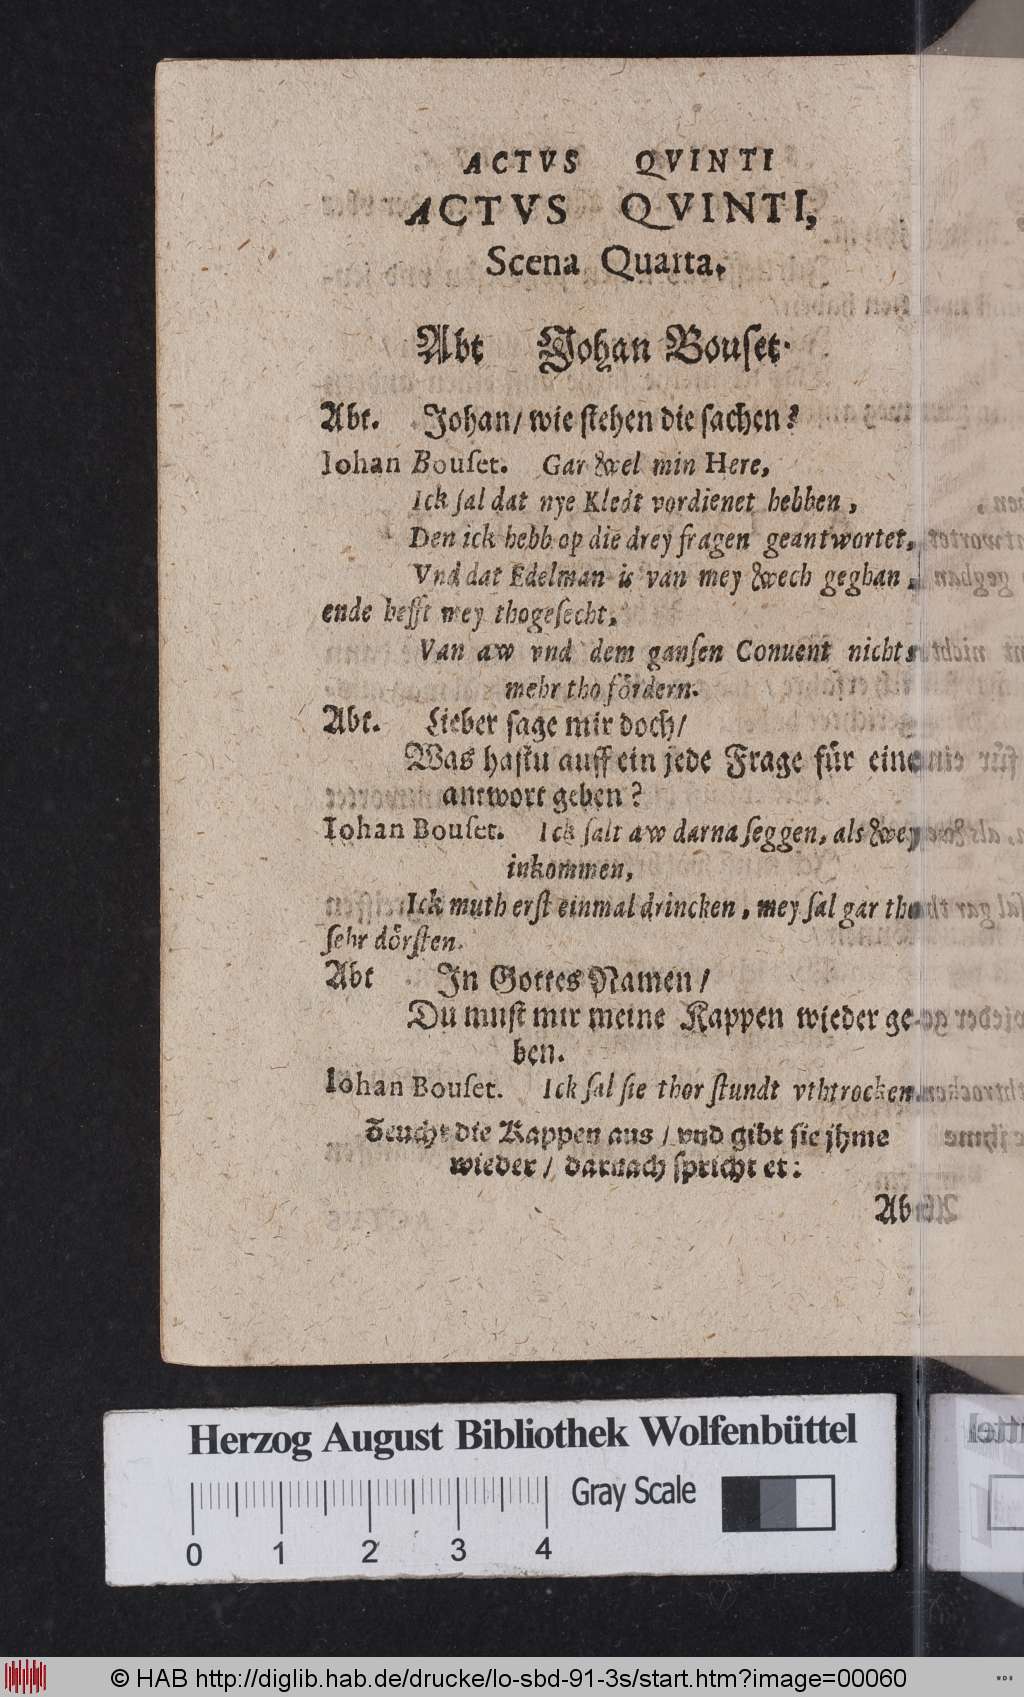 ACTVS QVINTI
ACTVS QVINTI,
Scena Quarta.
Abt Johan Bouſet.
Abt. Johan/ wie ſtehen die ſachen?
Iohan Bouſet. Gar wel min Here,
Ick ſal dat nye Kledt vordienet hebben,
Den ick hebb op die drey fragen geantwortet,
Vnd dat Edelman is van mey wech geghan,
ende hefft mey thogeſecht,
Van aw vnd dem ganſen Conuent nichts
mehr tho fördern.
Abt. Lieber ſage mir doch/
Was haſtu auff ein jede Frage für eine
antwort geben?
Iohan Bouſet. Ick ſalt aw darna ſeggen, als wey
inkommen,
Ick muth erſt einmal drincken, mey ſal gar tho
ſehr dörſten.
Abt In Gottes Namen/
Du muſt mir meine Kappen wieder ge-
ben.
Iohan Bouſet. Ick ſal ſie thor ſtundt vthtrocken.
Zeucht die Kappen aus/ vnd gibt ſie jhme
wieder/ darnach ſpricht er:
Abt
Herzog August Bibliothek Wolfenbüttel
Gray Scale
0 1 2 3 4
© HAB http://diglib.hab.de/drucke/lo-sbd-91-3s/start.htm?image=00060